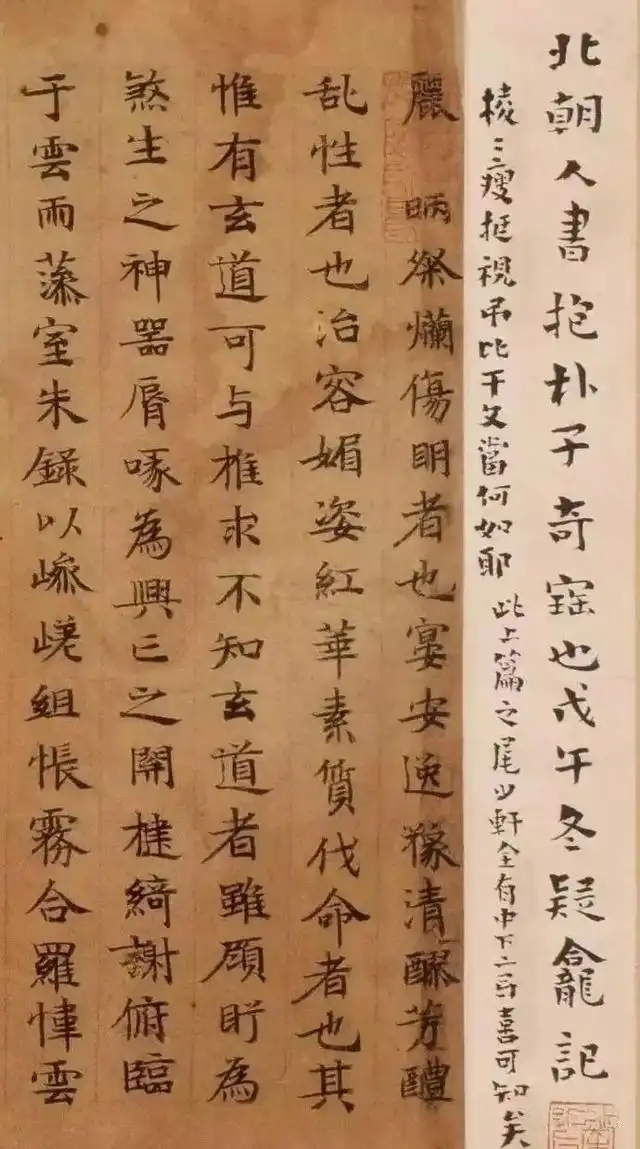 北朝人書抱朴子奇寶也戊午冬疑龕記
棱〻瘦挺視吊比干文當何如耶 此上篇之尾少軒全有中下二喜可知矣
麗 昞粲爛傷眀者也宴安逸豫清醪芳醴
乱性者也冶容媚姿紅華素質伐命者也其
惟有玄道可与推求不知玄道者雖顧盻為
煞生之神器脣啄為興亡之開楗綺榭俯臨
于雲雨藻室朱錄以嵾嵯組帳霧合羅幃雲